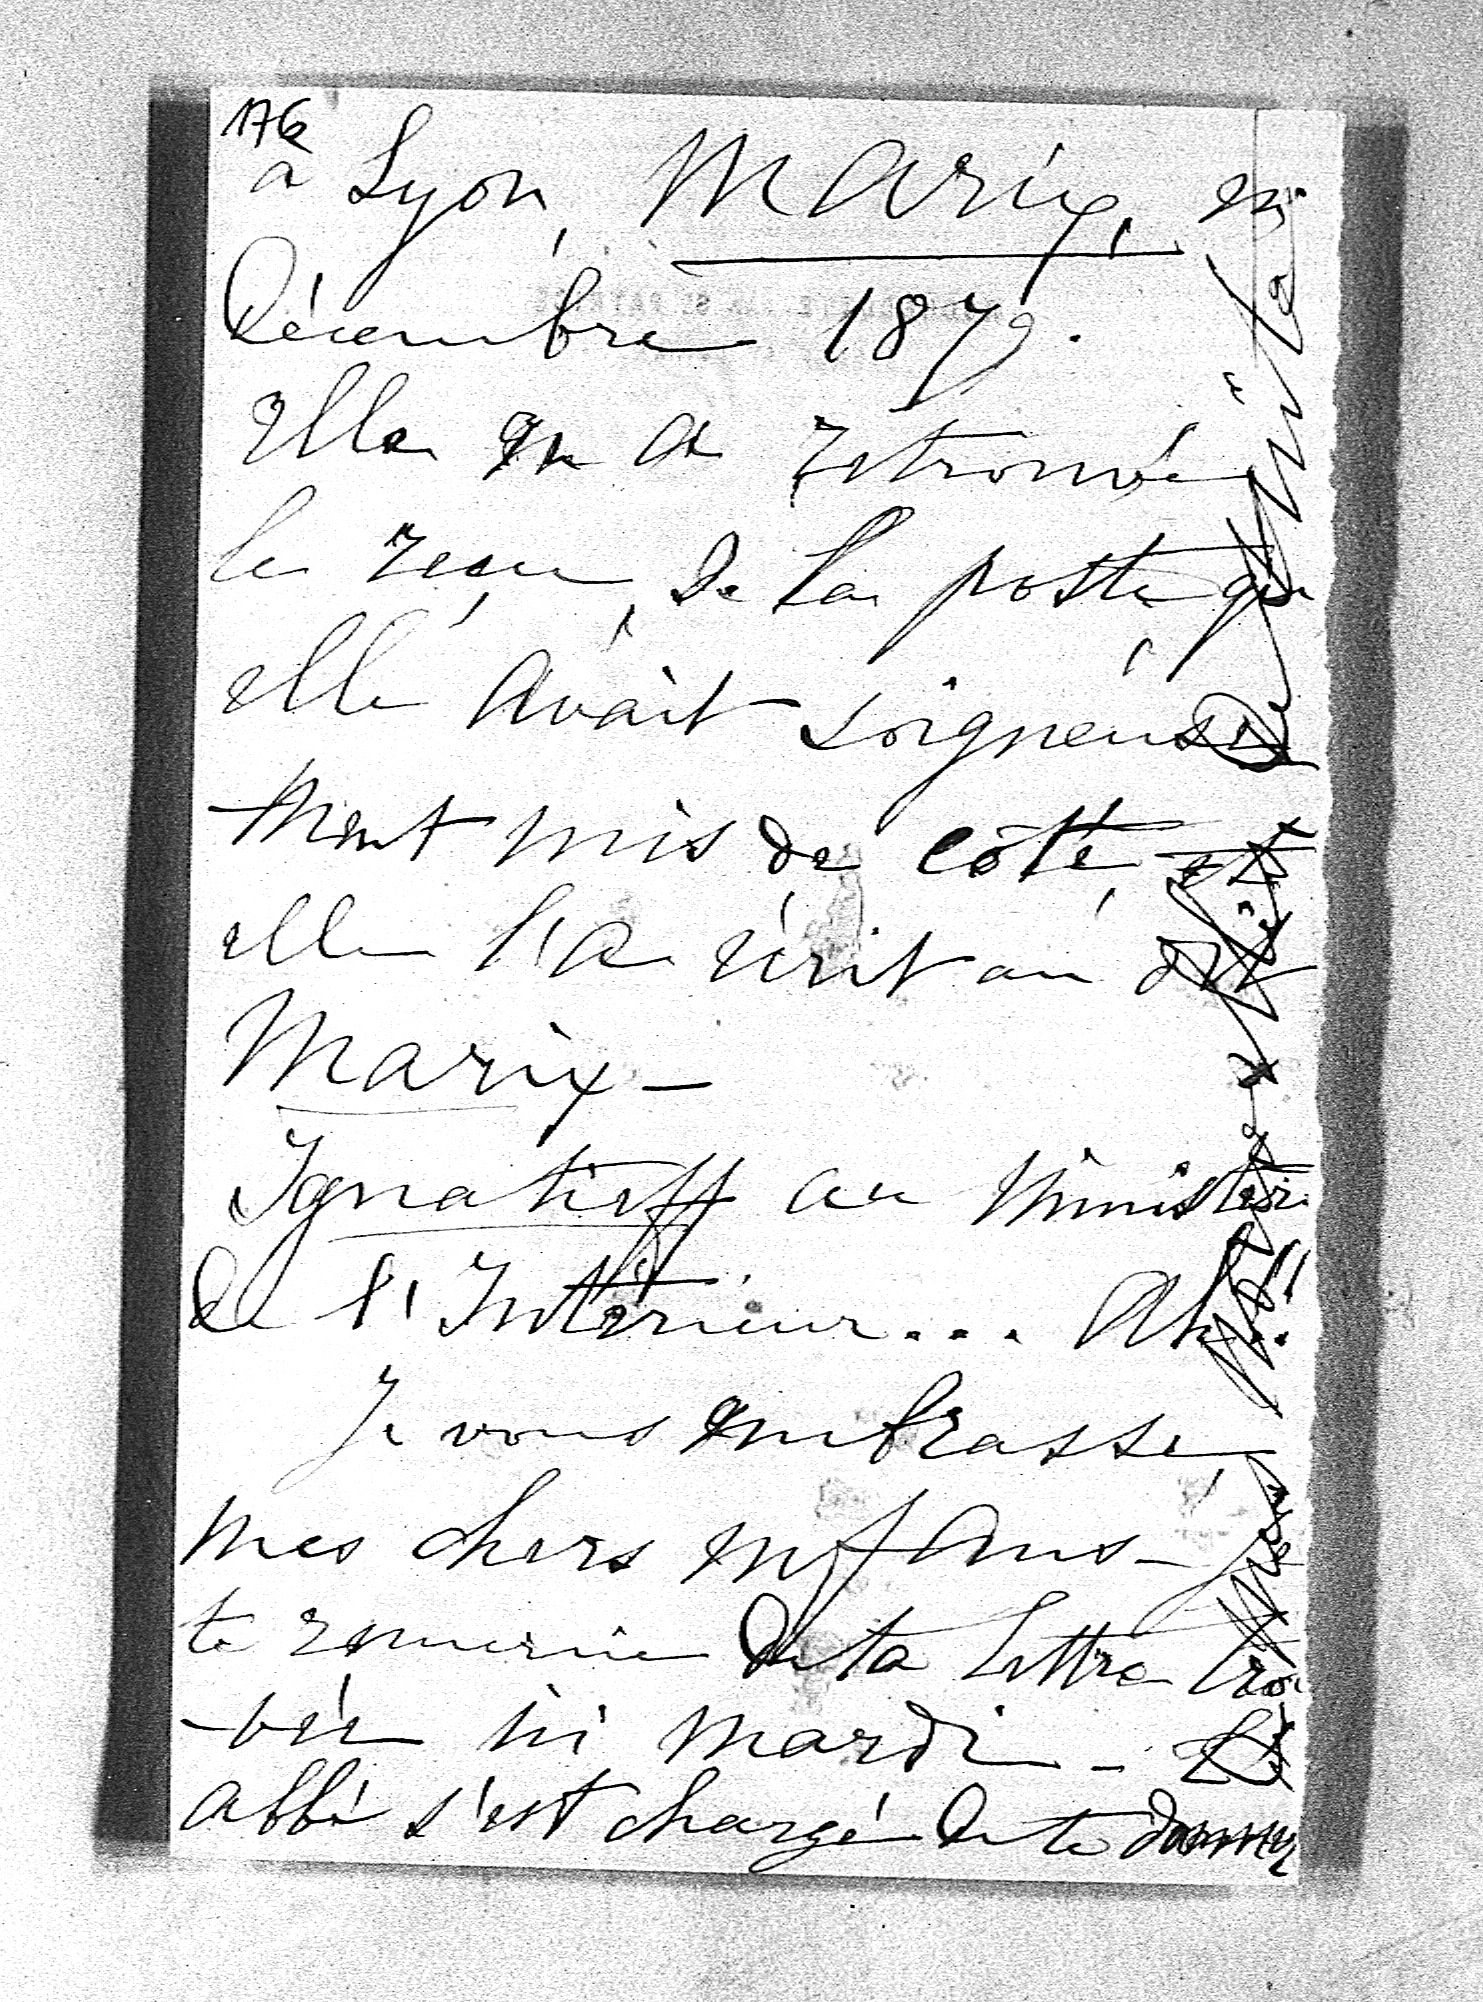 176
à Lyon, Marix, en
Décembre 1879.
elle en a retrouvé
le reçu, de la poste qu
elle avait soigneuse
-ment mis de côté, et
elle l'a écrit au dit
Marix -
Ignatieff au Ministère
de l'Intérieur... Ah!!
Je vous embrasse,
mes chers enfans - je
te remercie de ta lettre trou
-vée ici mardi - L'
abbé s'est chargé de te donner